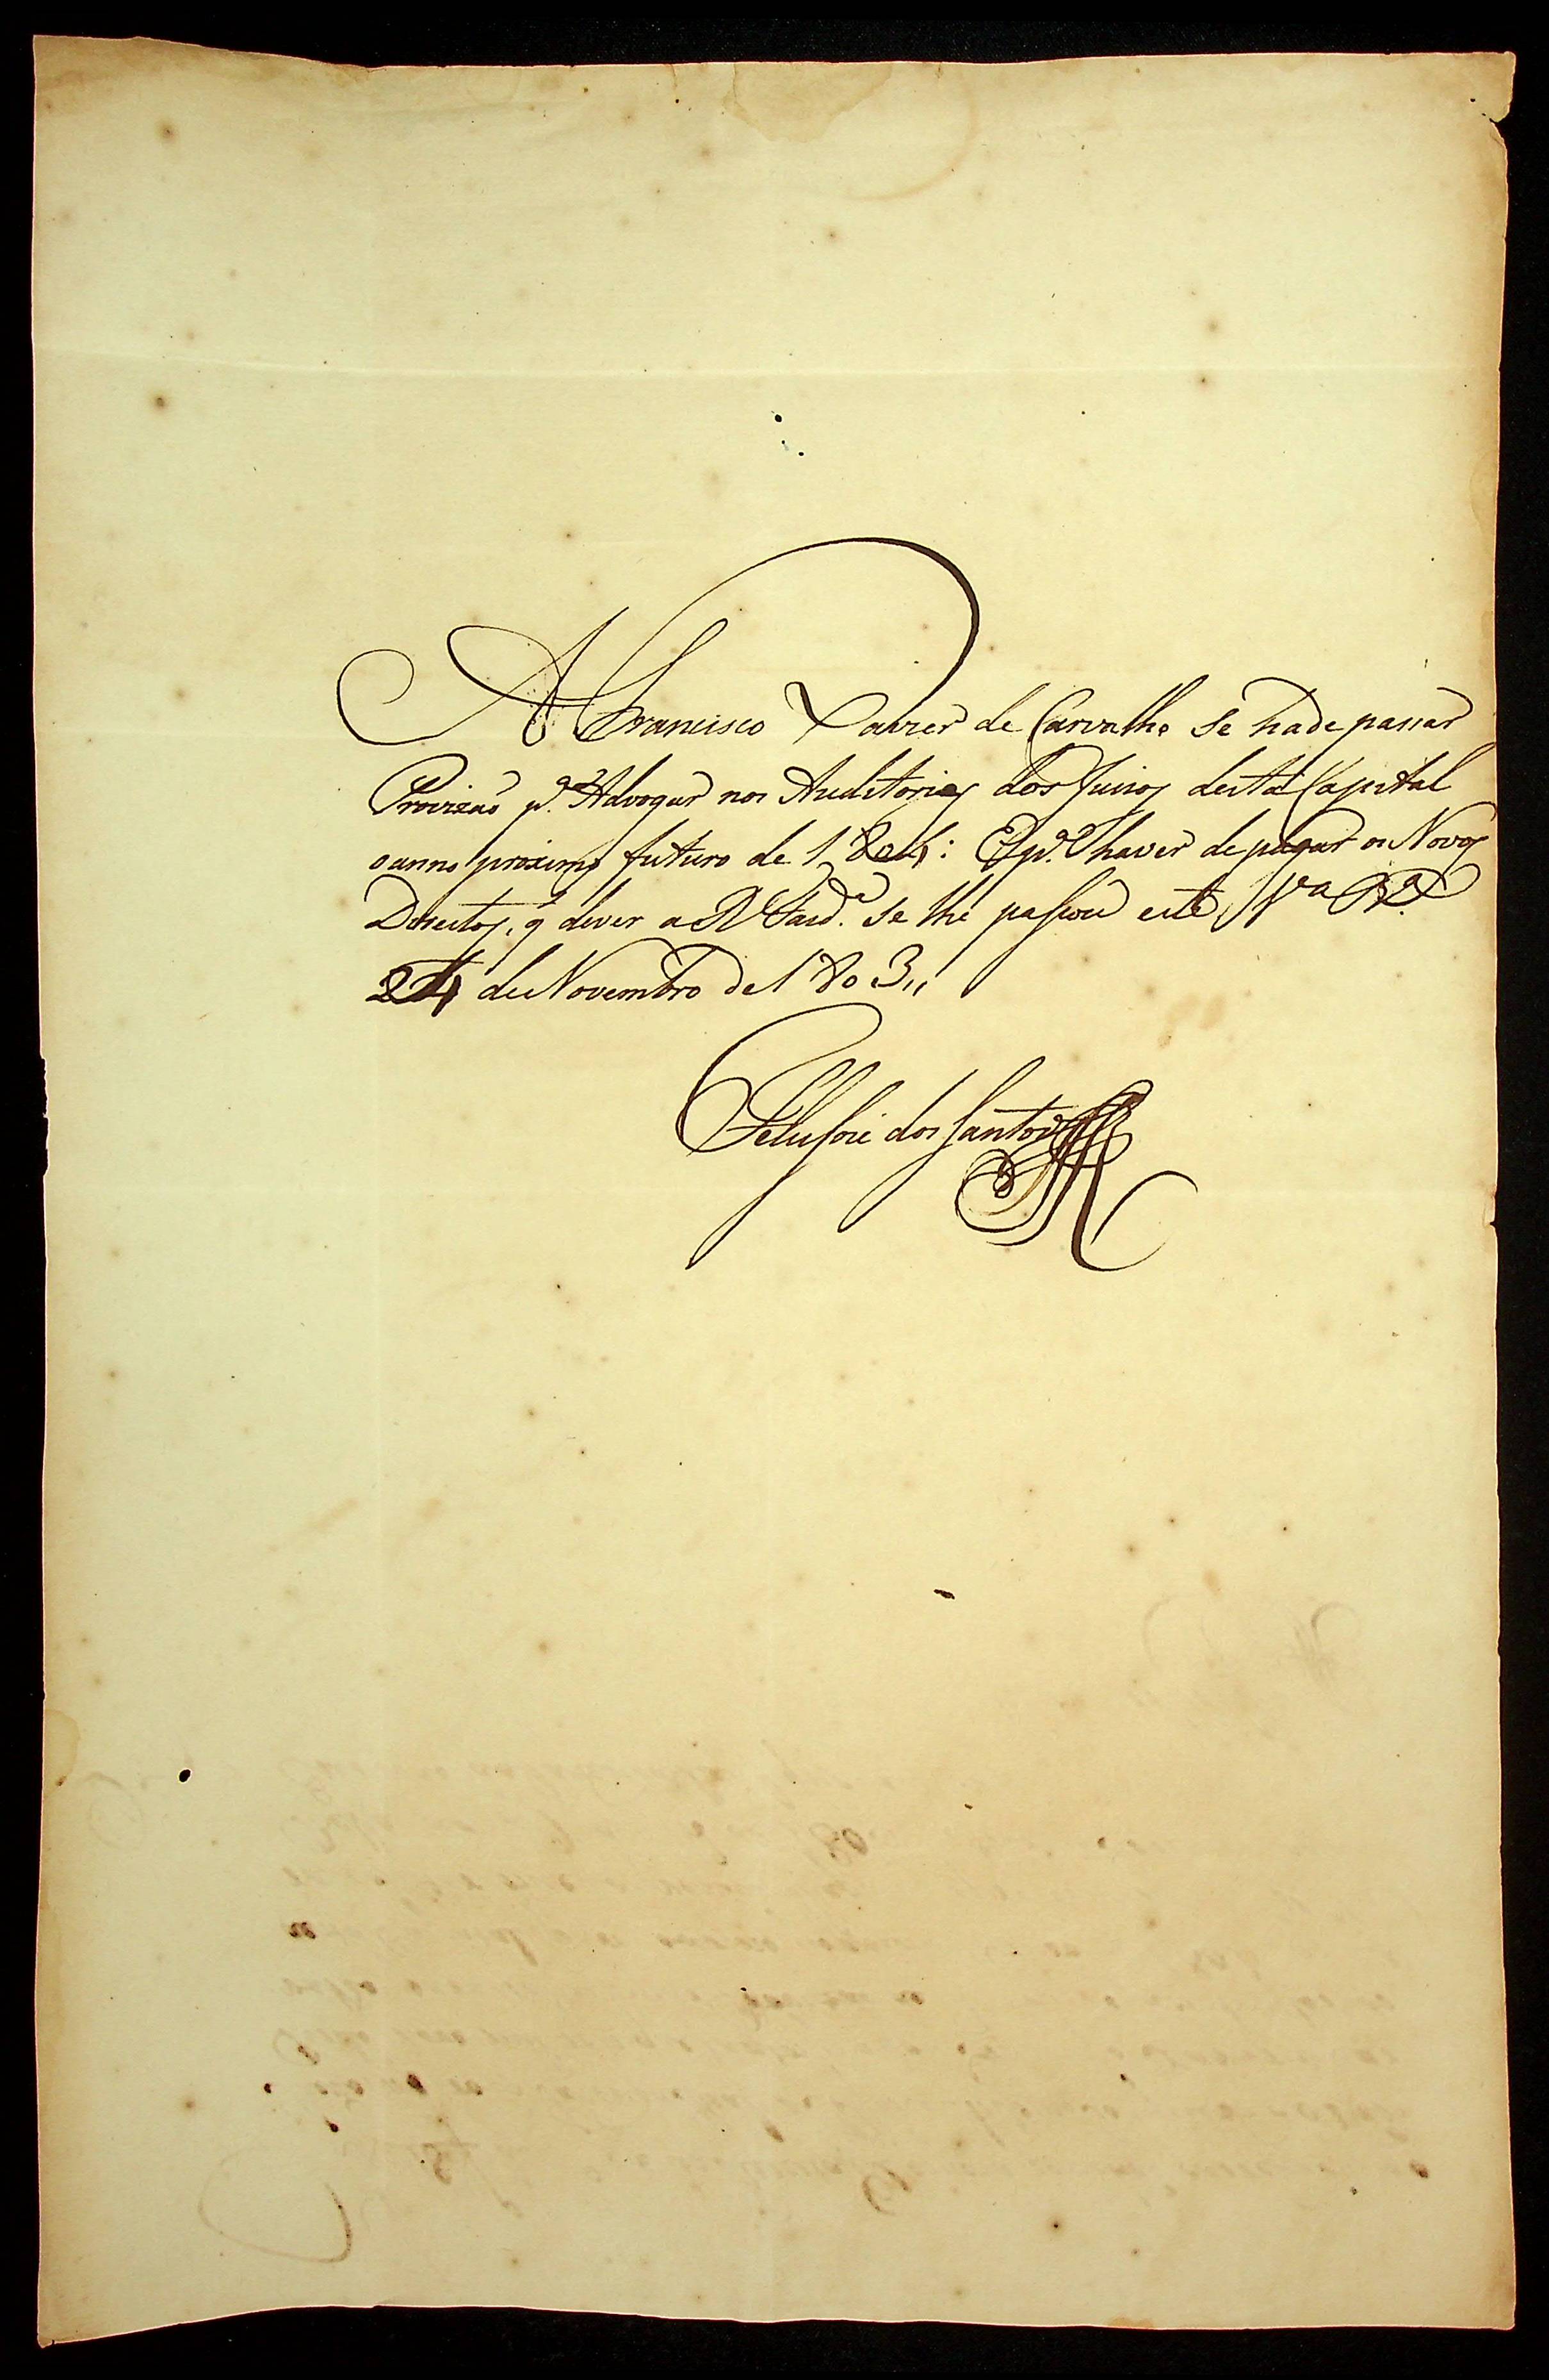 A Francisco Xavier de Carvalho se hade passar
Provizaõ p.ª Advogar nos Auditorios dos Juizos desta Capital
o anno proximo futuro de 1804: E p.ª haver de pagar os Novos
Direitos, q̃ dever a R Fazd.ª se lhe passou este, V.ª R.ª
24 de Novembro de 1803,,
Felis Jose dos Santos